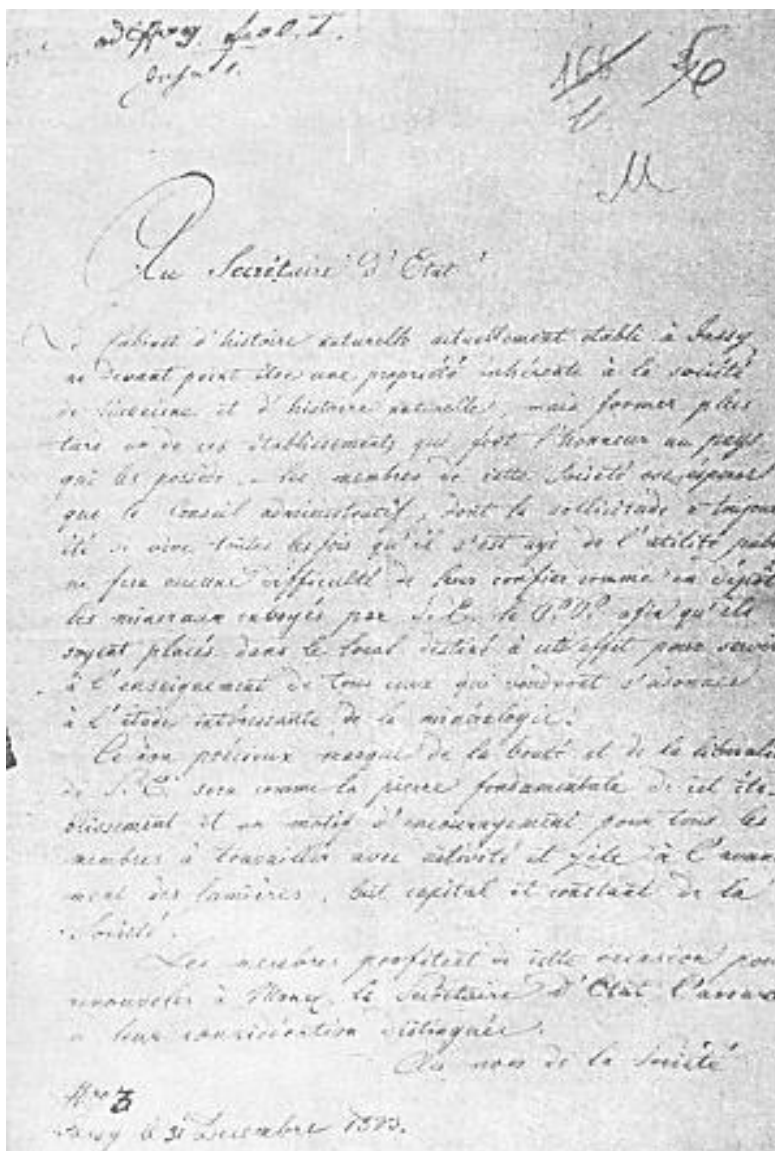 166
1
56
M
Au Secrétaire d'Etat
Le Cabinet d'histoire naturelle actuellement etabli à Jassy
ne devant point être une propriété inhérente à la société
de médecine et d'histoire naturelle, mais former plus
tard un de ces établissements qui font l'honneur au pays
qui les possède, les membres de cette Société ose espérer
que le Conseil administratif, dont la sollicitude a toujour
été si vive toutes les fois qu'il s'est agi de l'utilité publ
ne fera aucune difficulté de leur confier comme un dépôt
les mineraux envoyés par S. E. le afin qu'ils
soyent placés dans le local destiné à cet effet pour servir
à l'enseignement de tous ceux qui voudront s'adonner
à l'étude intéressante de la minéralogie.
Ce don précieux marque de la bonté et de la liberale
de S. E. sera comme la pierre fondamentale de cet éta-
blissement et un motif d'encouragement pour tous les
membres à travailler avec activité et zèle à l'avan
ment des lumières, but capital et constant de la
Société.
Les membres profitent de cette occasion pour
renouveler à le Secrétaire d'Etat l'assura
leur considération distinguée.
Au nom de la Société
Nro 3
Jassy le 31 Decembre